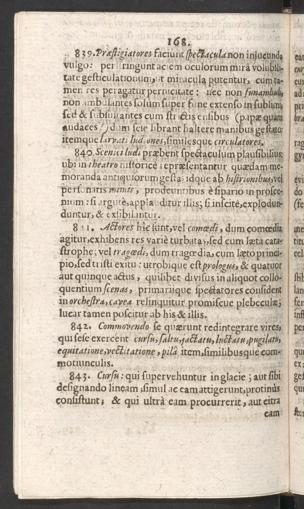 168.
839. Præstigiatores faciunt spectacula non injocunda
vulgo: perstringunt aciem oculorum mirâ volubili-
tate gesticulationum, ut miracula putentur, cum ta-
men res peragatur pernicitate: nec non funambuli,
non ambulantes solum super fune extenso in sublimi,
sed & subsilientes cum strictis ensibus (papæ quam
audaces!) dum sete librant haltere manibus gestato:
itemque larvati ludiones, simque circulatores.
840. Scenici ludi præbent spectaculum plausibilius:
ubi in theatro historicè repræsentantur quædam me-
moranda antiquorum gesta: idque ab histrionibus, vel
personatis mimis, prodeuntibus è sipario in prosce-
nium: si argutè, applauditur illis; si inscitè, exploduntur
duntur, & exsibilantur.
841. Actores hîc sunt, vel comœdi, dum comœdia
agitur, exhibens res variè turbata, sed cum læta cata-
strophe; vel tragœdi, dum tragœdia, cum læto princi-
pio, sed tristi exitu: utrobique est prologus, & quatuor
aut quinque actus, quilibet divisus in aliquot collo-
quentium scenas, primariique spectatores consident
in orchestra, cavea relinquitur promiscuæ plebeculæ;
lucar tamen poscitur ab his & illis.
842. Commovendo se quærunt redintegrare vires,
qui sese exercent cursu, saltu, jactatu, luctatu, pugilatu,
equitatione, vectitatione, pilâ item, similibusque com-
motiunculis.
843. Cursu: qui supervehuntur in glacie; aut sibi
designando lineam, simul ac eam attigerunt, protinus
consistunt, & qui ultrà eam procurrerit, aut citra
eam